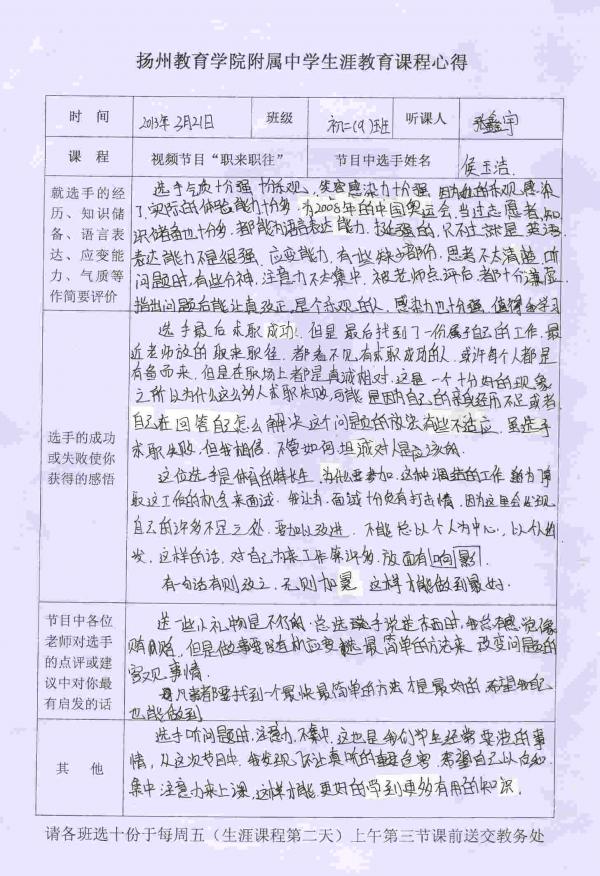 扬州教育学院附属中学生涯教育课程心得
时 间 2013年3月21日 班级 初二(9)班 听课人 张鑫宇
课 程 视频节目“职来职往” 节目中选手姓名 侯玉洁
就选手的经历、知识储备、语言表达、应变能力、气质等作简要评价
选手气质十分强 十分乐观,笑容感染力十分强 因为他的乐观感染
了,实际的体验能力十分多,为2008年的中国奥运会,当过志愿者,知
识储备也十分多,都能为语言表达能力,挺强的,只不过就是英语
表达能力不是很强、应变能力,有些缺少部份,思考不太清楚,听
问题时,有些分神,注意力不太集中,被老师点评后,都十分谦虚
指出问题后能认真改正,是个乐观的人,感染力也十分强,值得去学习
选手的成功或失败使你获得的感悟
选手最后求职成功,但是最后找到了一份属于自己的工作,最
近老师放的职来职往,都看不见有求职成功的人,或许每个人都是
有备而来,但是在职场上者都是真诚相对,这是一个十分好的现象
之所以为什么这么多人求职失败,可能是因为自己的亲身经历不足或者
自己在回答自己怎么解决这个问题的放法有些不适应,虽选手
求职失败,但我相信,不管如何,坦诚对人是应该的
这位选手是体育的特长生,为什么要参加,这种调药的工作,努力争
取这工作的机会来面试,我认为,面试十分负有打击情,因为这里会发现
自己的许多不足之处,要加以改进,不能总以个人为中心,以个人出
发,这样的话,对自己为来工作等许多,放面有响影
有句话有则改之,无则加冕,这样才能做到最好.
节目中各位老师对选手的点评或建议中对你最有启发的话
送一些小礼物是不假的,总选选手说是本面时,我总有感觉像
贿赂,但是做事要随机应变,挑最简单的方法来,改变问题的
客观事情.
凡事都要找到一个最快最简单的方法才是最好的,希望我自己
也能做到
其 他
选手听问题时,注意力不集中,这也是我们学生经常要犯的事
情,从这次节目中,我发现了认真听的重要,希望自己以后和
集中注意力来上课,这样才能更好的学到更多有用的知识.
请各班选十份于每周五(生涯课程第二天)上午第三节课前送交教务处